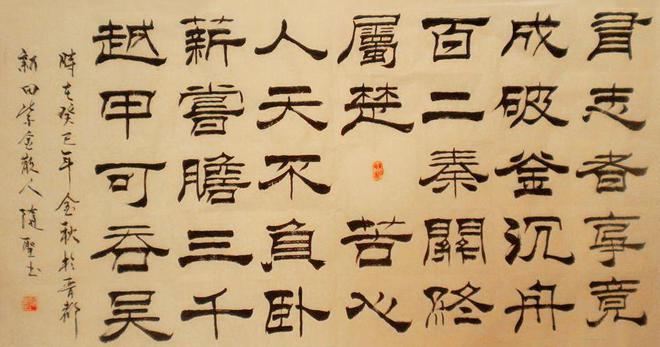 有志者事竟
成破釜沉舟
百二秦關終
屬楚
苦心
人天不負卧
薪嘗膽三千
越甲可吞吴
時在癸巳年金秋於晋都
新田紫金散人 聖书